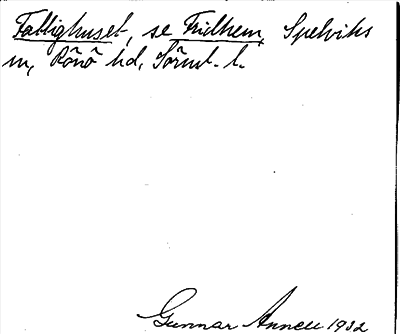 Fattighuset, se Fridhem, Spelviks
sn, Rönö hd, Sörml. l.
Gunnar Annell 1932